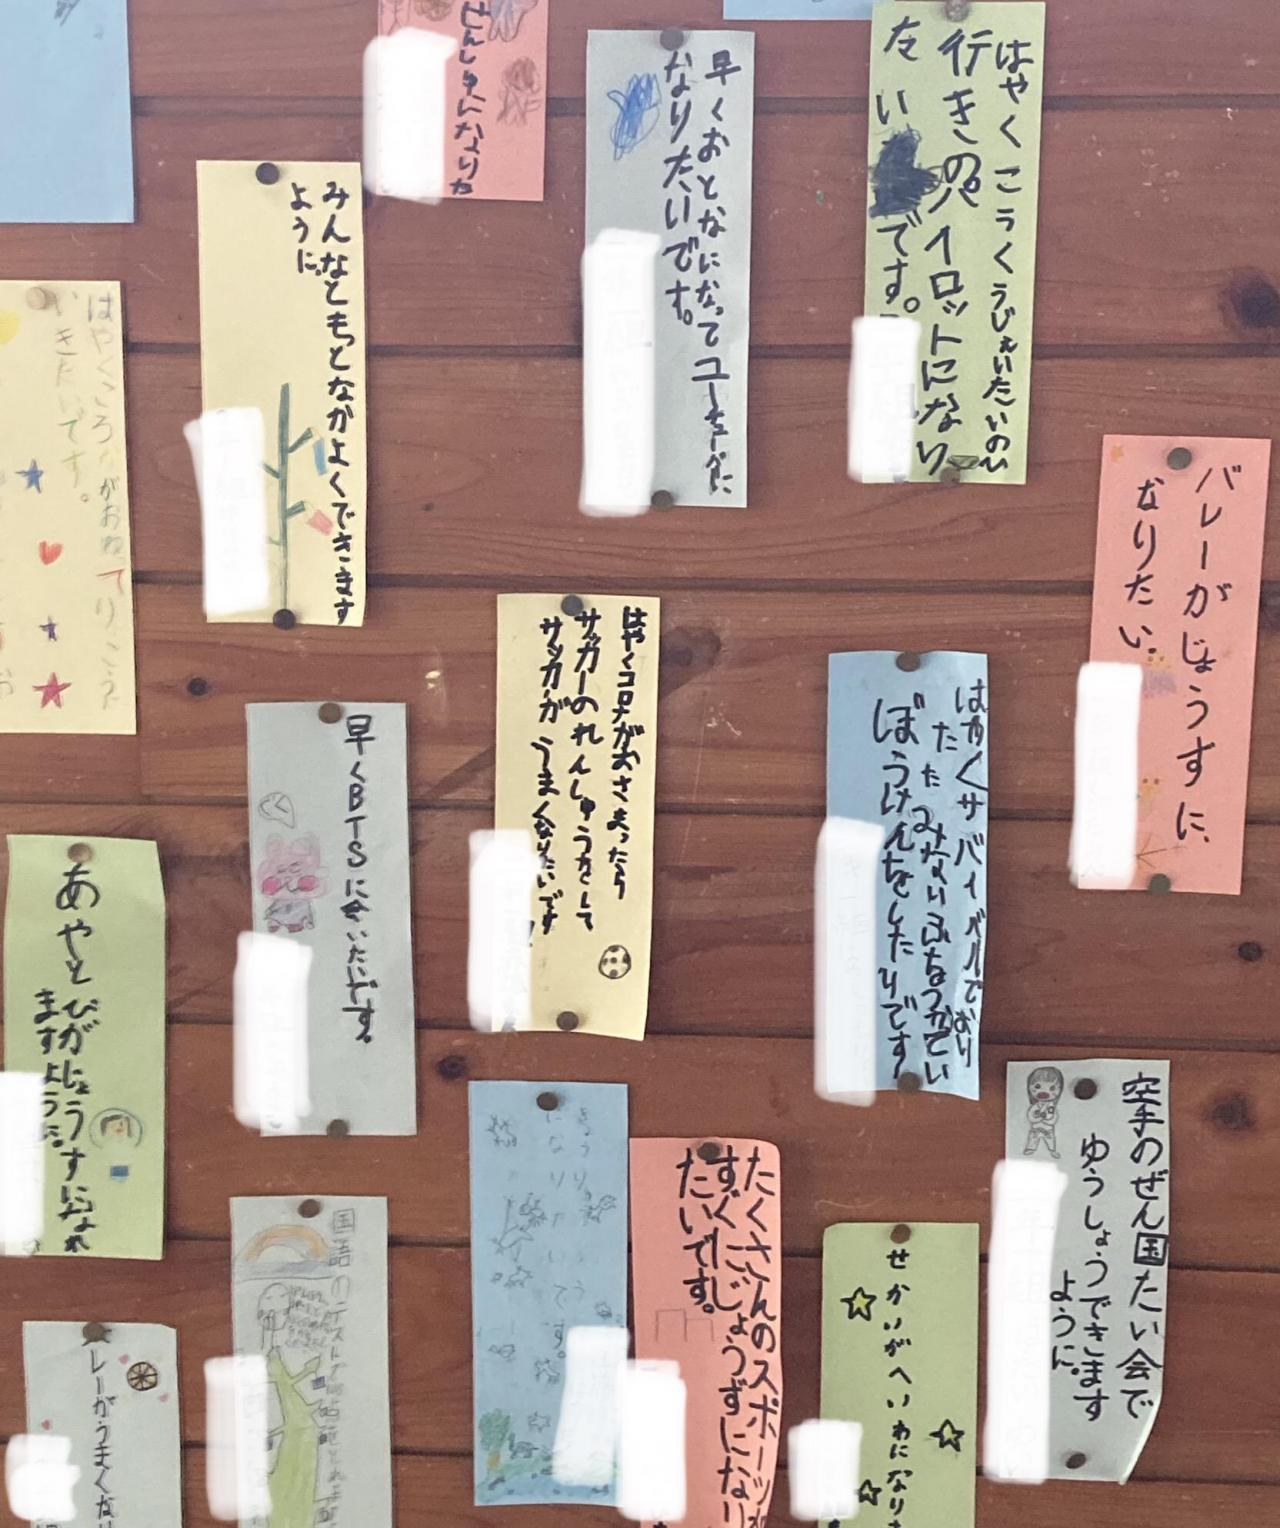 せんしゅになりた
早くおとなになってユーチューバーに
なりたいです。
はやくこうくうじえいたいのひ
行きのパイロットになり
たい
です。
みんなともっとなかよくできます
ように。
はやくころながおわってりょこうに
いきたいです。
バレーがじょうずに、
なりたい。
はやくコロナがおさまったら
サッカーのれんしゅうをして
サッカーがうまくなりたいです
はやくサバイバルでおり
たたみないふをつかてい
ぼうけんをしたりです
早くBTSに会いたいです。
あやとびがじょうずになれ
ますように。
空手のぜん国たい会で
ゆうしょうできます
ように。
きょうりゅう
になりたいです。
たくさんのスポーツが
すぐにじょうずになり
たいです。
せかいがへいわになりま
国語のテストで
レーがうまくなり